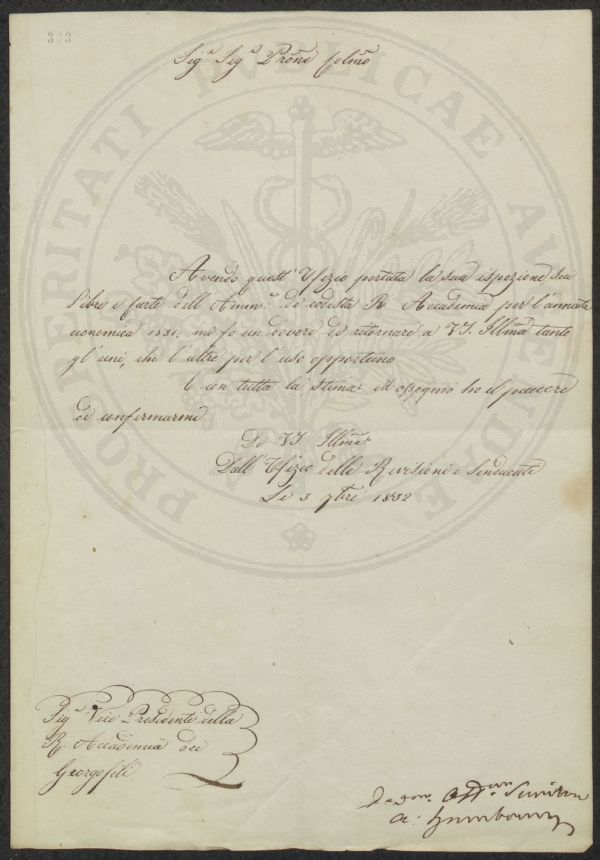 303
Sig.e Sig.e Prōne Colmō
Avendo quest' Ufizio portata la sua ispezione sui
Libri e Carte dell' Ammne di codesta R. Accademia per l'annata
economica 1831, mi fo un dovere di ritornare a VS. Illma tanto
gl' uni, che l' altre per l' uso opportuno
E con tutta la stima ed ossequio ho il piacere
di confermarmi
Di VS. Illma
Dall' Ufizio delle Revisioni e Sindacati
Li 3 7bre 1832
Sig.e Vice Presidente della
R. Accademia dei
Georgofili
PROSPERITATI PVBLICAE AVGENDAE